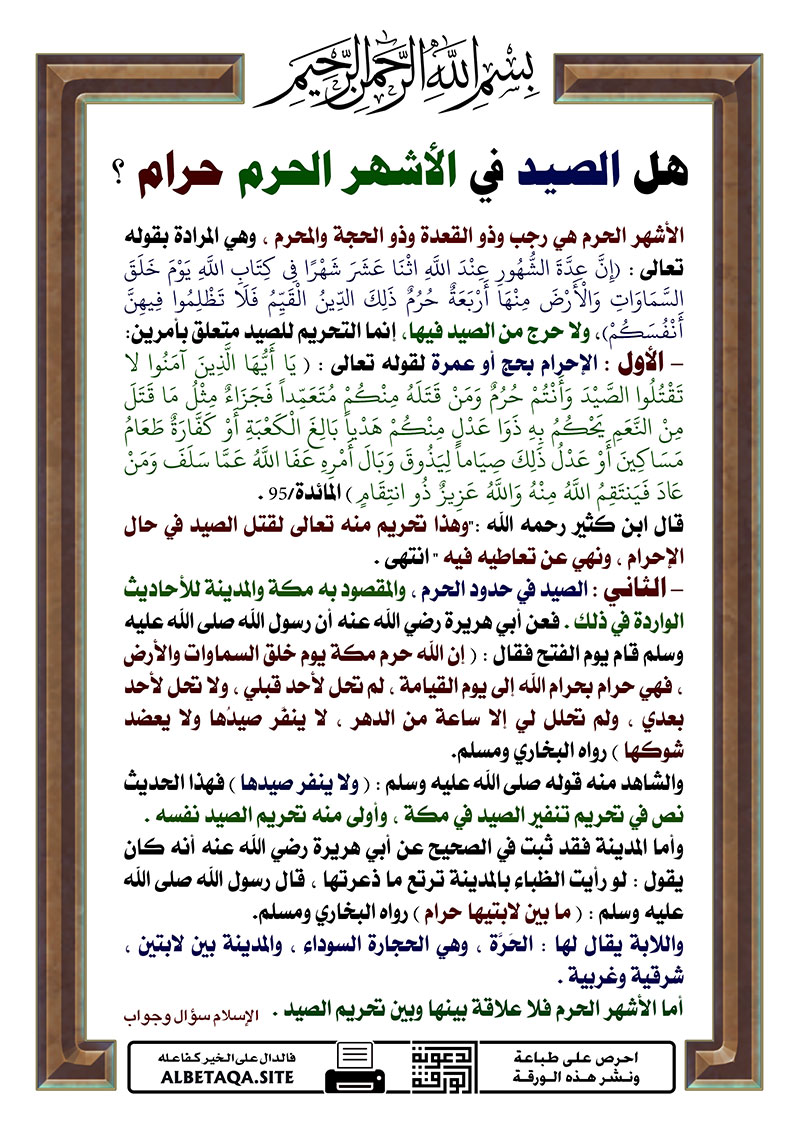 بِسْمِ اللَّهِ الرَّحْمَٰنِ الرَّحِيمِ
هل الصيد في الأشهر الحرم حرام ؟
الأشهر الحرم هي رجب وذو القعدة وذو الحجة والمحرم ، وهي المرادة بقوله
تعالى : (إِنَّ عِدَّةَ الشُّهُورِ عِنْدَ اللَّهِ اثْنَا عَشَرَ شَهْرًا فِي كِتَابِ اللَّهِ يَوْمَ خَلَقَ
السَّمَاوَاتِ وَالْأَرْضَ مِنْهَا أَرْبَعَةٌ حُرُمٌ ذَلِكَ الدِّينُ الْقَيِّمُ فَلَا تَظْلِمُوا فِيهِنَّ
أَنْفُسَكُمْ)، ولا حرج من الصيد فيها، إنما التحريم للصيد متعلق بأمرين:
– الأول : الإحرام بحج أو عمرة لقوله تعالى : ( يَا أَيُّهَا الَّذِينَ آمَنُوا لا
تَقْتُلُوا الصَّيْدَ وَأَنْتُمْ حُرُمٌ وَمَنْ قَتَلَهُ مِنْكُمْ مُتَعَمِّداً فَجَزَاءٌ مِثْلُ مَا قَتَلَ
مِنْ النَّعَمِ يَحْكُمُ بِهِ ذَوَا عَدْلٍ مِنْكُمْ هَدْياً بَالِغَ الْكَعْبَةِ أَوْ كَفَّارَةٌ طَعَامُ
مَسَاكِينَ أَوْ عَدْلُ ذَلِكَ صِيَاماً لِيَذُوقَ وَبَالَ أَمْرِهِ عَفَا اللَّهُ عَمَّا سَلَفَ وَمَنْ
عَادَ فَيَنتَقِمُ اللَّهُ مِنْهُ وَاللَّهُ عَزِيزٌ ذُو انتِقَامٍ ) المائدة/95 .
قال ابن كثير رحمه الله :"وهذا تحريم منه تعالى لقتل الصيد في حال
الإحرام ، ونهي عن تعاطيه فيه " انتهى .
– الثاني : الصيد في حدود الحرم ، والمقصود به مكة والمدينة للأحاديث
الواردة في ذلك . فعن أبي هريرة رضي الله عنه أن رسول الله صلى الله عليه
وسلم قام يوم الفتح فقال : ( إن الله حرم مكة يوم خلق السماوات والأرض
، فهي حرام بحرام الله إلى يوم القيامة ، لم تحل لأحد قبلي ، ولا تحل لأحد
بعدي ، ولم تحلل لي إلا ساعة من الدهر ، لا ينفَّر صيدُها ولا يعضد
شوكها ) رواه البخاري ومسلم.
والشاهد منه قوله صلى الله عليه وسلم : ( ولا ينفر صيدها ) فهذا الحديث
نص في تحريم تنفير الصيد في مكة ، وأولى منه تحريم الصيد نفسه .
وأما المدينة فقد ثبت في الصحيح عن أبي هريرة رضي الله عنه أنه كان
يقول : لو رأيت الظباء بالمدينة ترتع ما ذعرتها ، قال رسول الله صلى الله
عليه وسلم : ( ما بين لابتيها حرام ) رواه البخاري ومسلم.
واللابة يقال لها : الحَرَّة ، وهي الحجارة السوداء ، والمدينة بين لابتين ،
شرقية وغربية .
أما الأشهر الحرم فلا علاقة بينها وبين تحريم الصيد . الإسلام سؤال وجواب
احرص على طباعة
ونشر هذه الورقة
الدعوية
الورقة
فالدال على الخير كفاعله
ALBETAQA.SITE